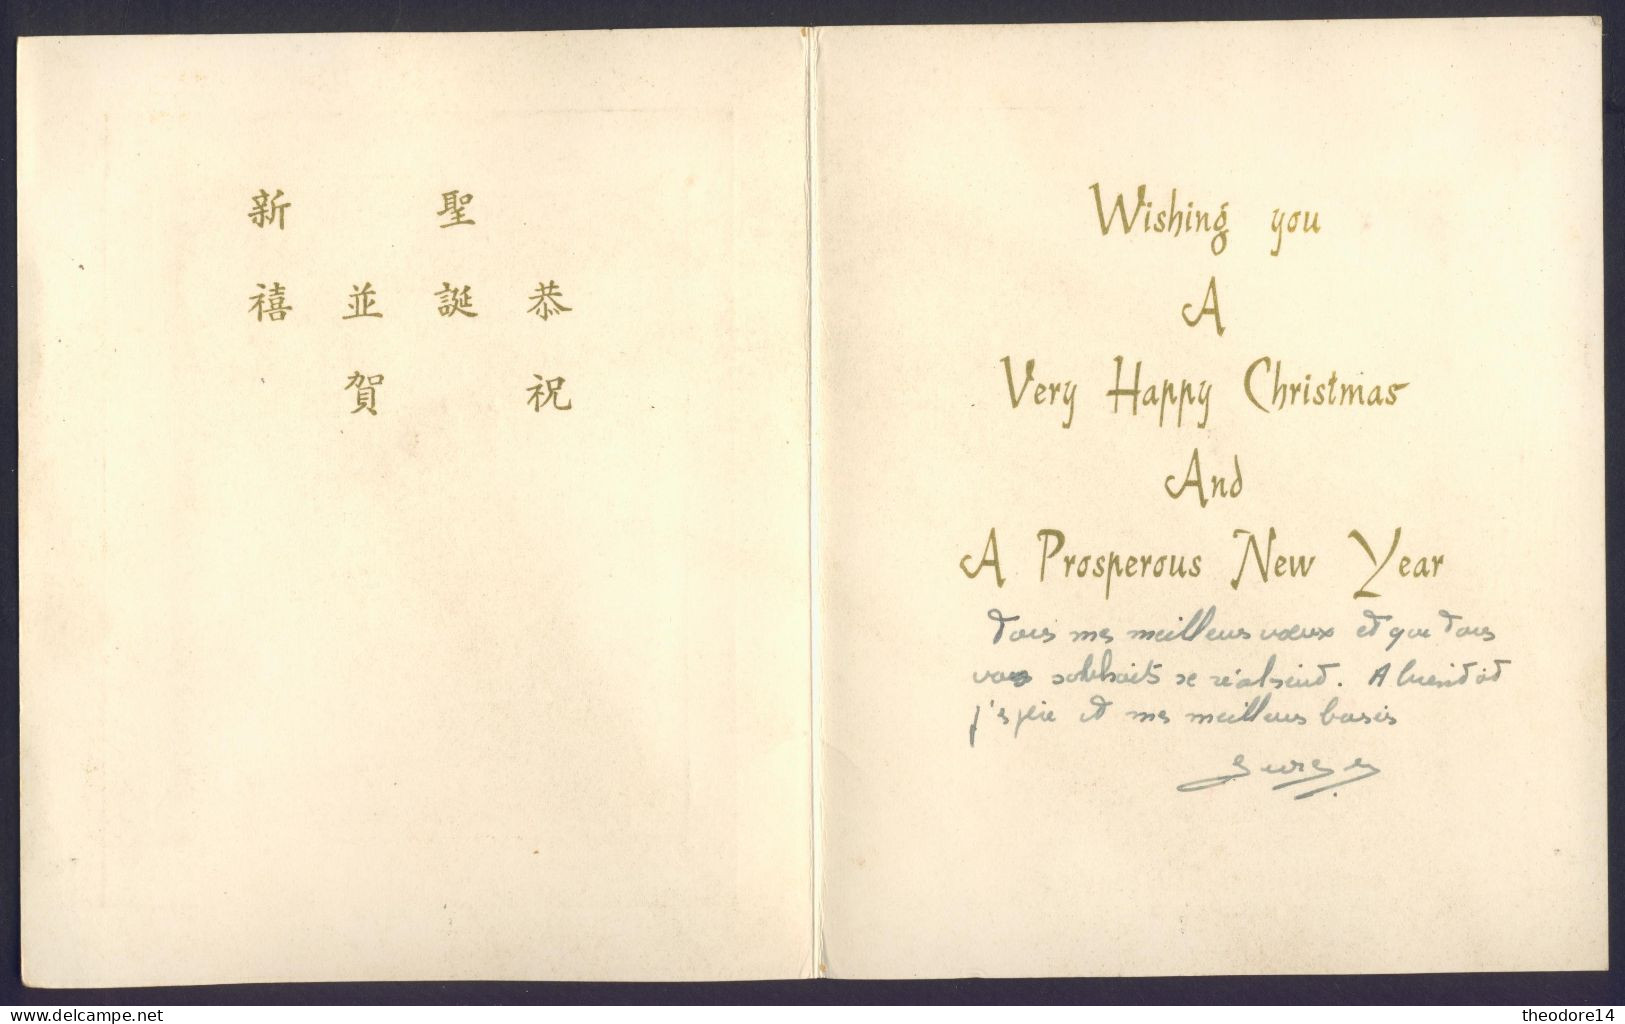 恭祝
聖誕
並賀
新禧
Wishing you
A
Very Happy Christmas
And
A Prosperous New Year
Tous mes meilleurs vœux et que tous
vos souhaits se réalisent. A bientôt
j'espère et mes meilleurs baisers
www.delcampe.net
theodore14